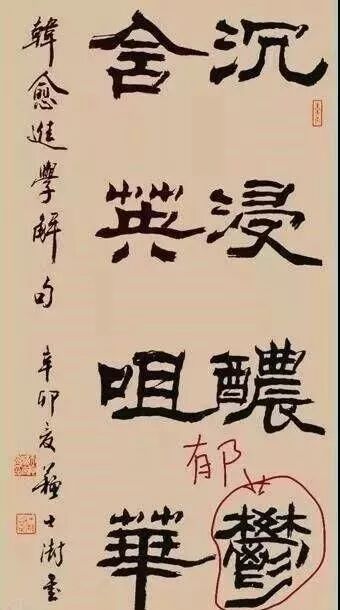 沉浸醲鬱
含英咀華
韓愈進學解句
辛卯夏蘇士澍書
郁